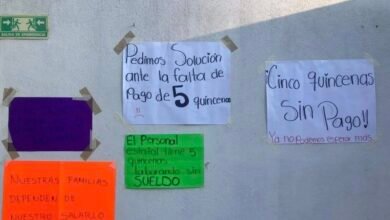 SALIDA DE EMERGENCIA
Pedimos Solución
ante la falta de
Pago de 5 quincenas
!!
¡Cinco quincenas
Sin
Pago!!
Ya no Podemos esperar más.
El Personal
estatal tiene 5
quincenas
laborando sin
SUELDO
NUESTRAS FAMILIAS
DEPENDEN DE
NUESTRO SALARIO